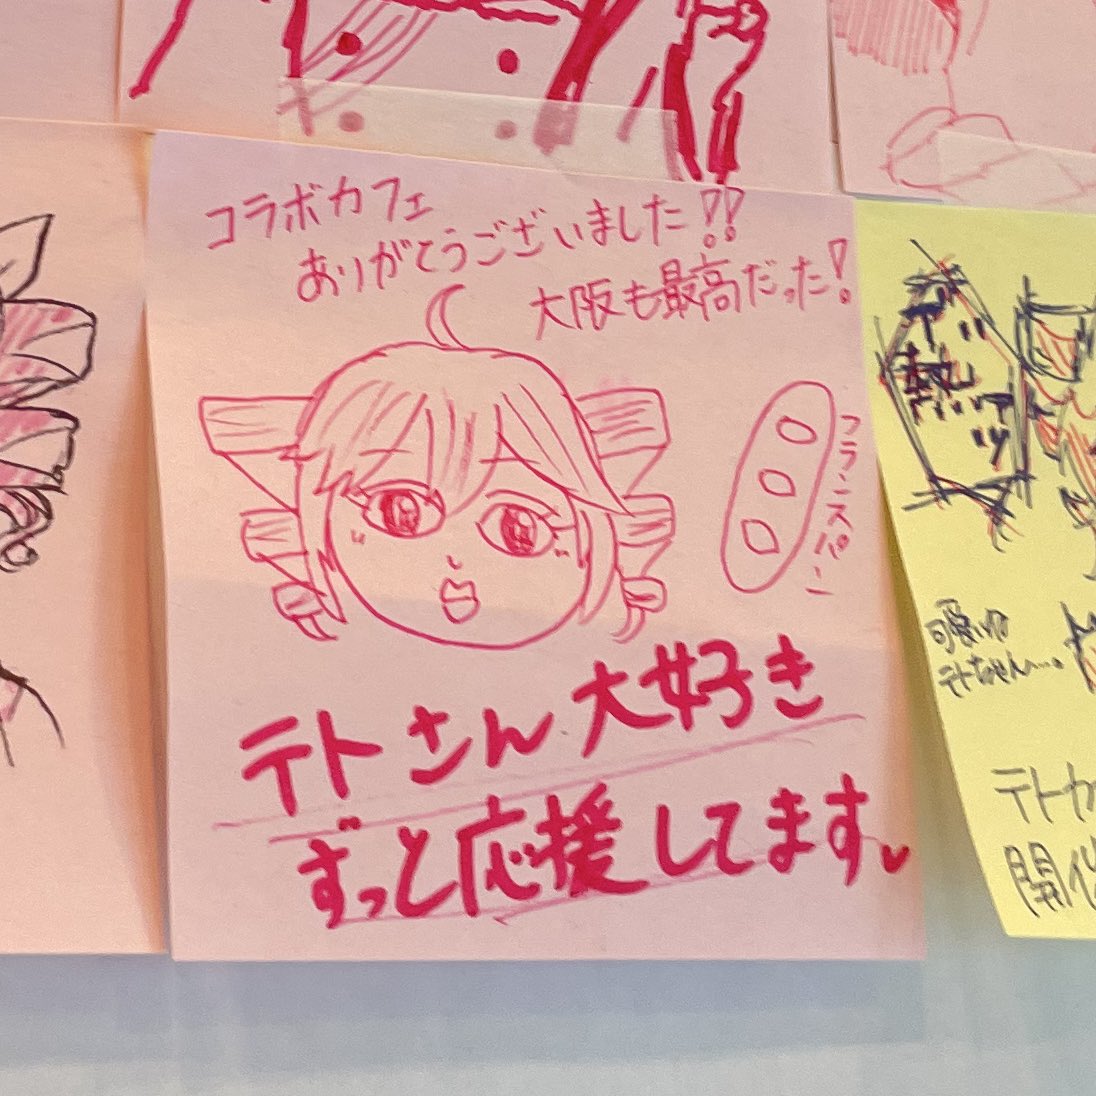 コラボカフェ
ありがとうございました!!
大阪も最高だった!
フランスパン
テトさん大好き
ずっと応援してます
可愛いな
テトちゃん....。
テトカ
開催